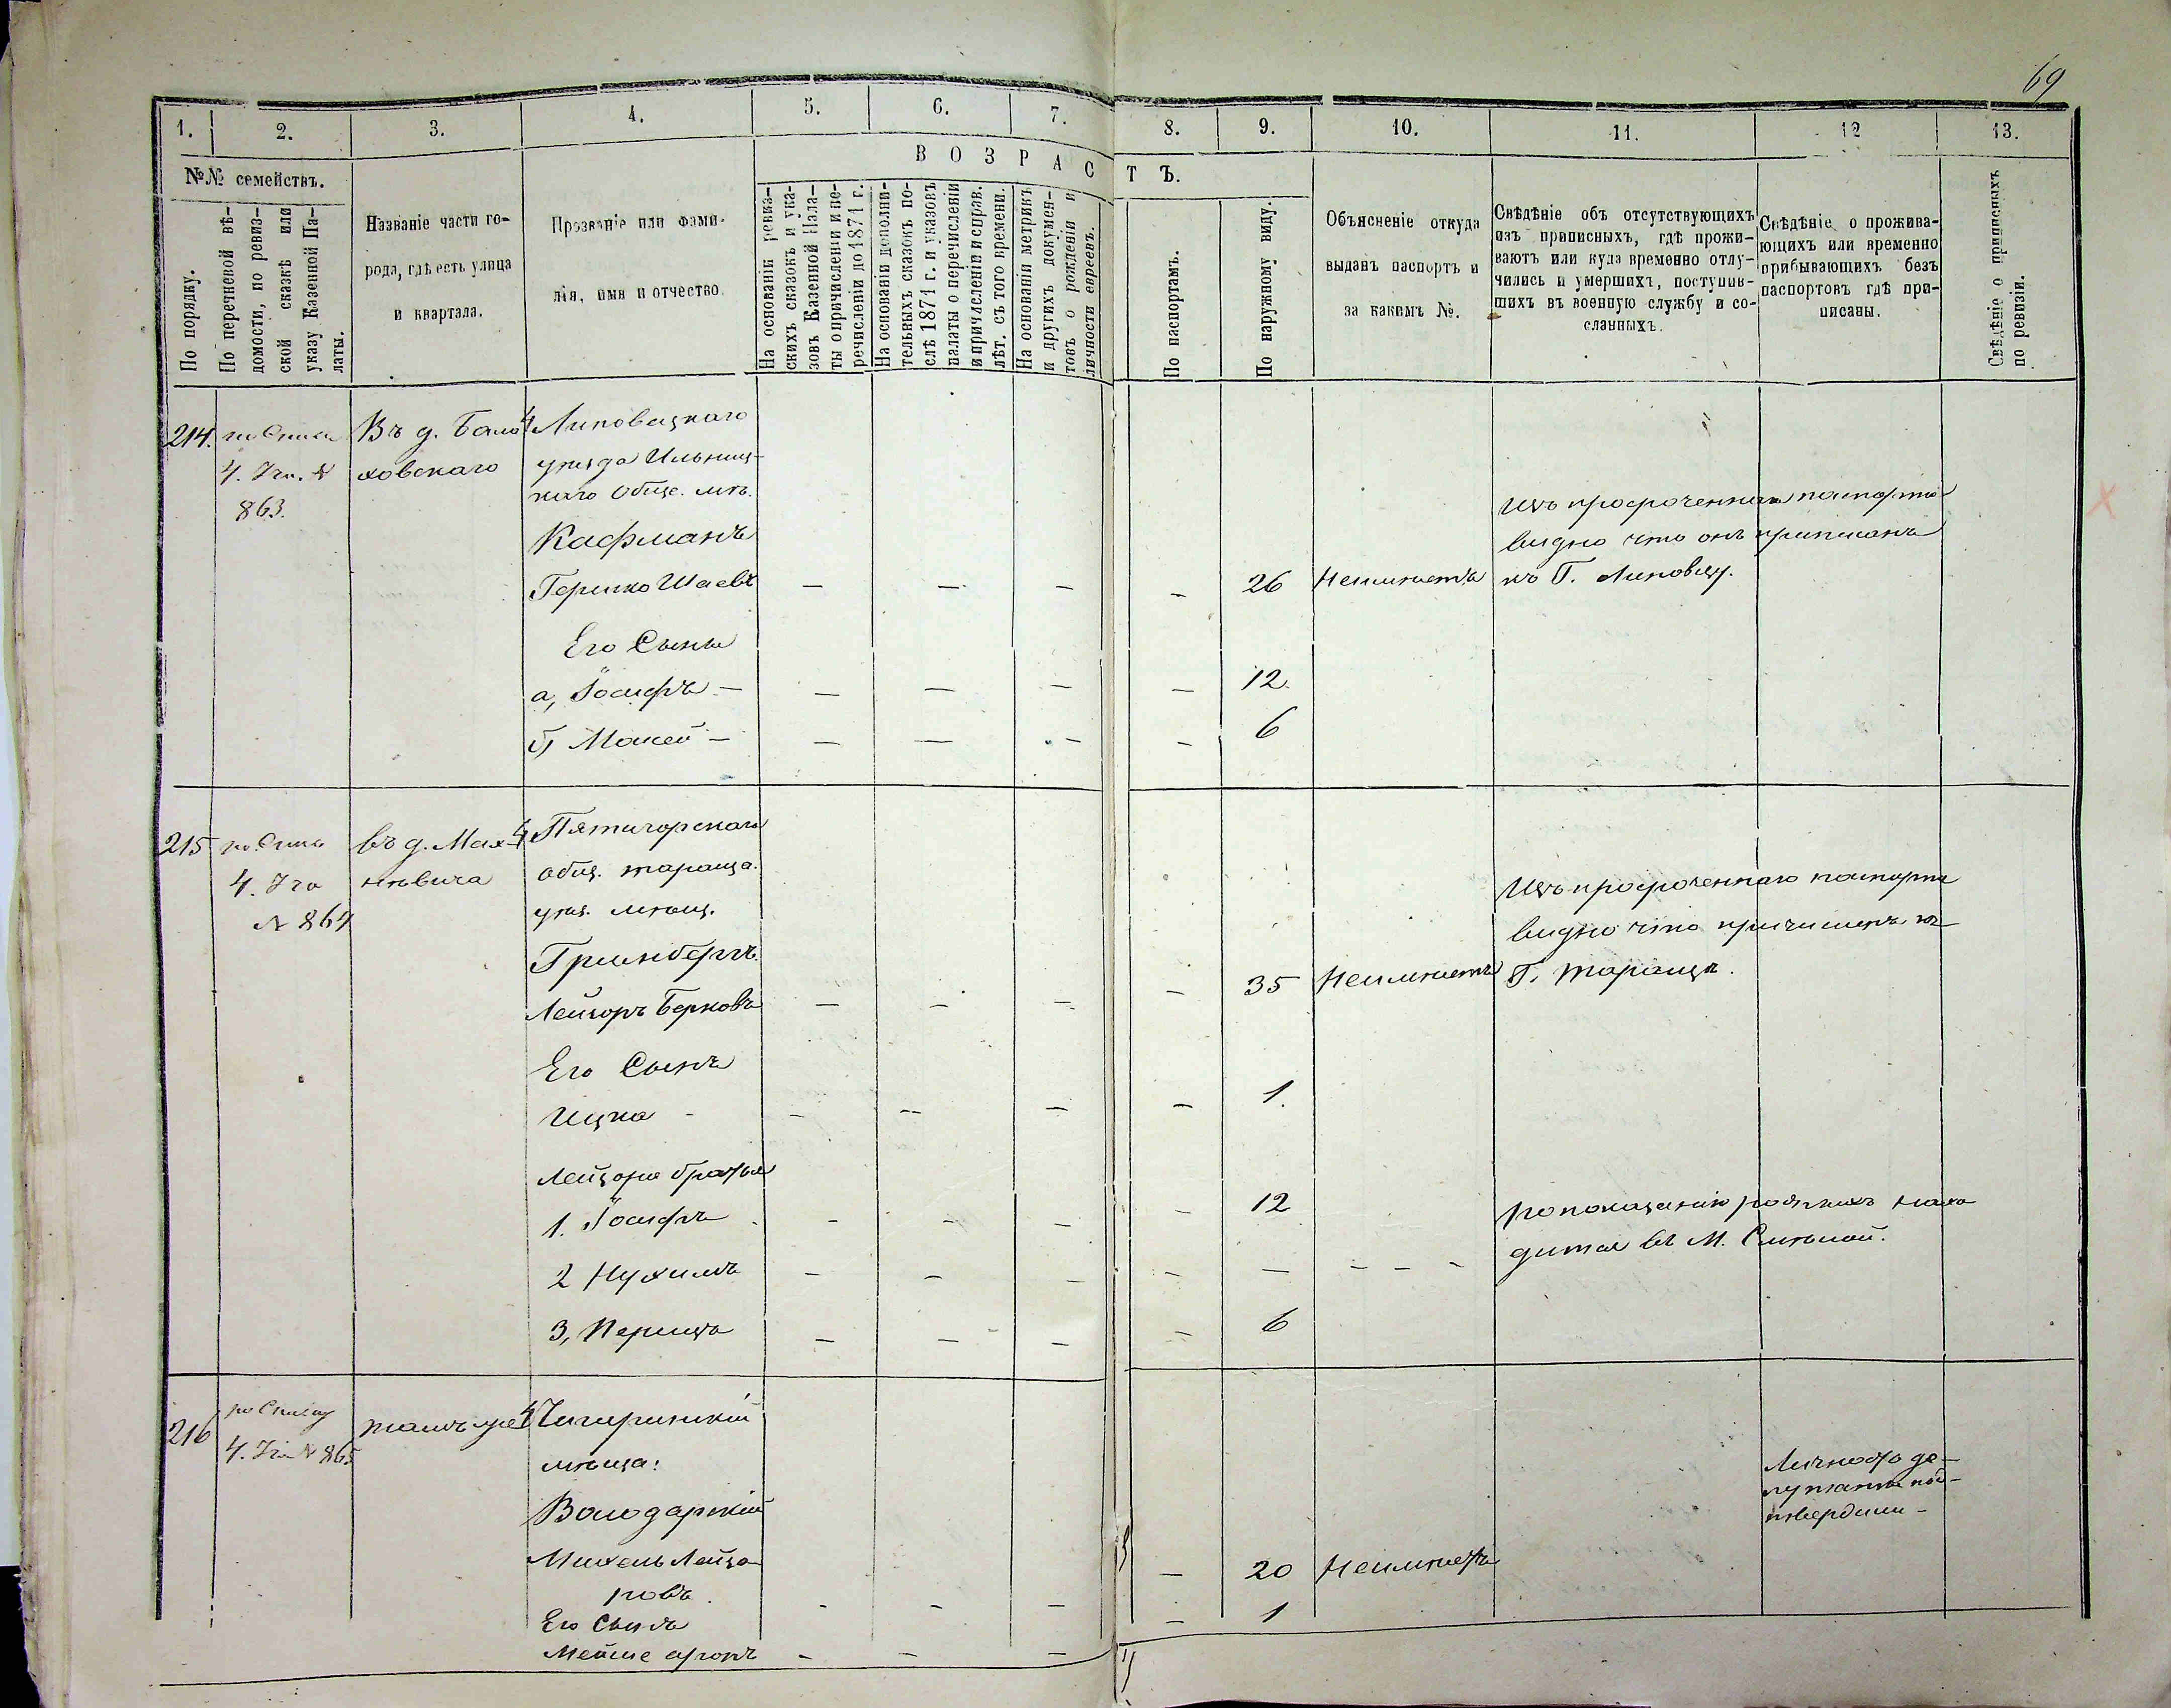 69
1. 2. 3. 4. 5. 6. 7. 8. 9. 10. 11. 12 13.
№№ семействъ.
ВОЗРАСТЪ.
По порядку.
По перечневой вѣ-
домости, по ревиз-
ской сказкѣ или
указу Казенной Па-
латы.
Названіе части го-
рода, гдѣ есть улица
и квартала.
Прозваніе или фами-
лія, имя и отчество.
На основаніи ревиз-
скихъ сказокъ и ука-
зовъ Казенной Пала-
ты о причисленіи и пе-
речисленіи до 1871 г.
На основаніи дополни-
тельныхъ сказокъ по-
слѣ 1871 г. и указовъ
палаты о перечисленіи
и причисленіи и справ.
лѣт. съ того времени.
На основаніи метрикъ
и другихъ докумен-
товъ о рожденіи и
личности евреевъ.
По паспортамъ.
По наружному виду.
Объясненіе откуда
выданъ паспортъ и
за какимъ №.
Свѣдѣніе объ отсутствующихъ
изъ приписныхъ, гдѣ прожи-
ваютъ или куда временно отлу-
чились и умершихъ, поступив-
шихъ въ военную службу и со-
сланныхъ.
Свѣдѣніе о прожива-
ющихъ или временно
прибывающихъ безъ
паспортовъ гдѣ при-
писаны.
Свѣдѣніе о приписныхъ
по ревизіи.
214. по Списк Въ д. Бало Липовецкаго
4. Уча. № ховскаго уѣзда Ильинец-
863. каго Обще. мѣ.
Кафманъ
Гершко Шаевъ — — — — 26 Неимѣетъ
Изъ просроченнаго паспорта
видно что онъ приписанъ
къ Г. Липовцу.
Его Сыны
а, Іосифъ — — — — — 12.
б, Мокей — — — — — 6
215 по Списк въ д. Мах- Пятигорскаго
4. Уча нѣвича общ. тараща.
№ 864 уѣз. мѣщ.
Гринбергъ.
Лейзоръ Берковъ — — — — 35 Неимѣетъ
Изъ просроченнаго паспорта
видно что причисленъ къ
Г. Таращѣ.
Его Сынъ
Ицко - — — — — 1.
Лейзора братья
1. Іосифъ - — — — — 12
2 Нухимъ — — — — — — — -
по показанію родныхъ нахо
дится въ М. Смѣлой.
3, Перецъ — — — — 6
216 по Списку тамъ же Чигиринскій
4. Уча № 865 мѣща:
Володарскій
Михель Лейзо-
ровъ — — — — 20 Неимѣетъ
Личность де-
путаты под-
твердили -
Его Сынъ 1
Мейше аронъ - — — —